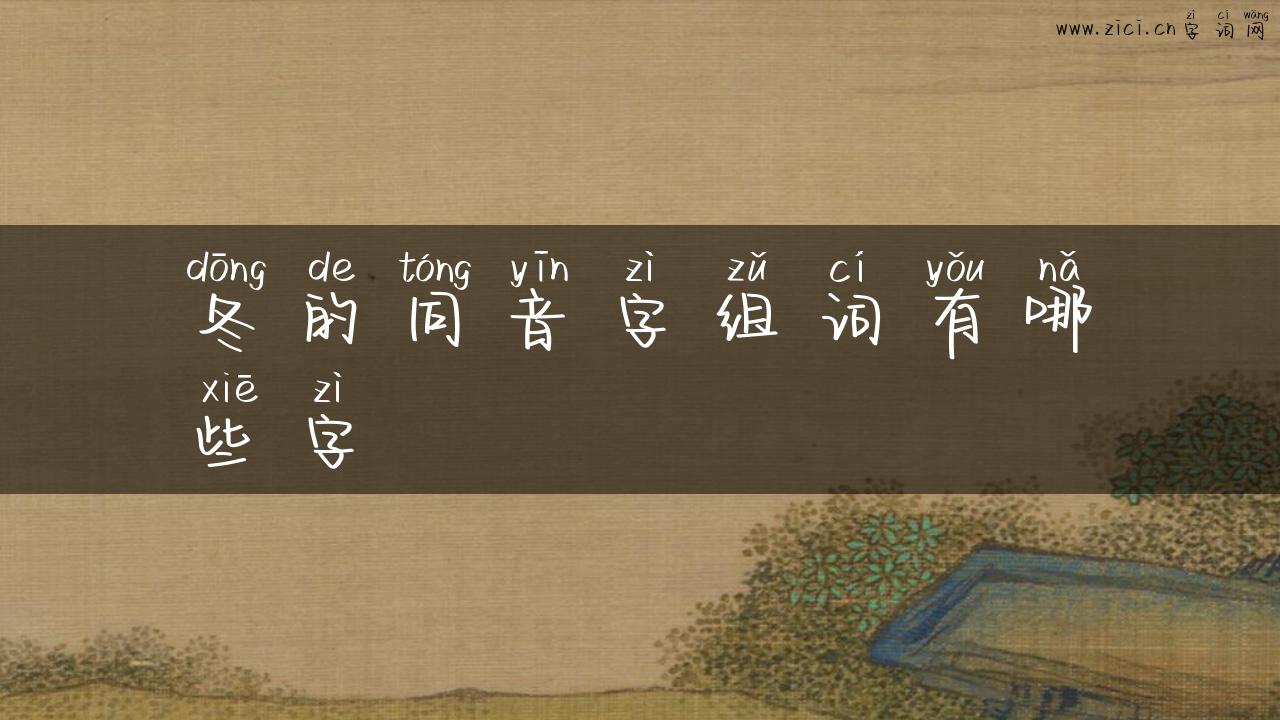 zì cí wǎng
www.zici.cn 字词网
dōng de tóng yīn zì zǔ cí yǒu nǎ
冬的同音字组词有哪
xiē zì
些字